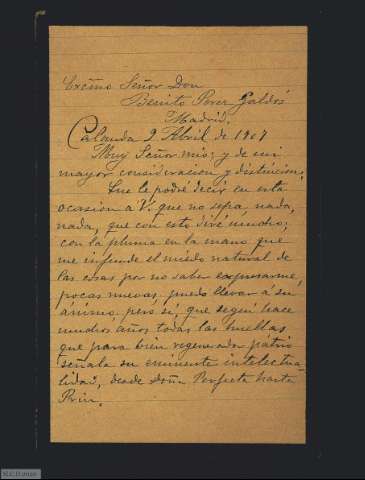 Excmo Señor Don
Benito Perez Galdós
Madrid.
Calanda 9 Abril de 1907
Muy Señor mio: y de mi
mayor consideracion y distincion:
Que le podré decir en esta
ocasion a V. que no sepa nada,
nada, que con esto diré mucho;
con la pluma en la mano que
me infunde el miedo natural de
las cosas por no saber expresarme,
pocas nuevas puedo llevar á su
ánimo, pero si, que seguí hace
muchos años todas las huellas
que para bien regenerador patrio
señala su eminente intelectua-
lidad, desde Doña Perfecta hasta
Prin.